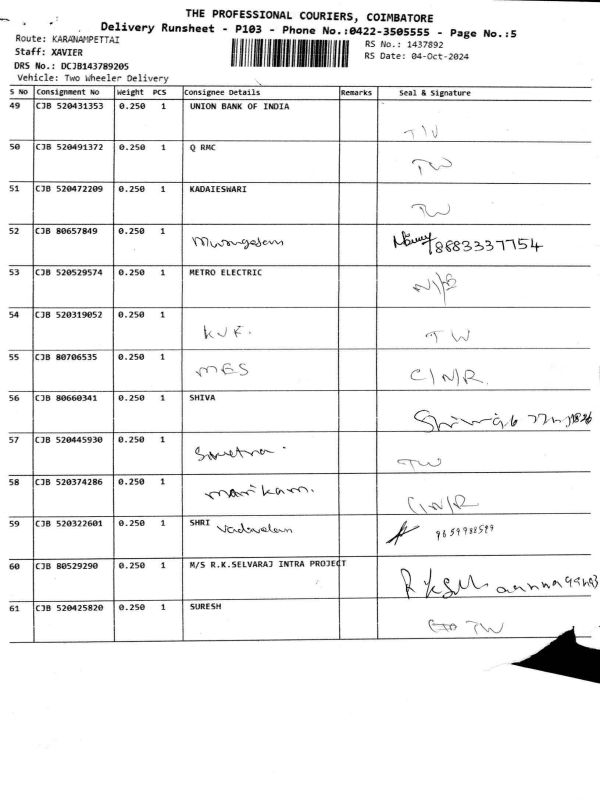 THE PROFESSIONAL COURIERS, COIMBATORE
Delivery Runsheet - P103 - Phone No.:0422-3505555 - Page No.:5
Route: KARANAMPETTAI
RS No.: 1437892
Staff: XAVIER
RS Date: 04-Oct-2024
DRS No.: DCJB143789205
Vehicle: Two Wheeler Delivery
S No Consignment No Weight PCS Consignee Details Remarks Seal & Signature
49 CJB 520431353 0.250 1 UNION BANK OF INDIA
T/W
50 CJB 520491372 0.250 1 Q RMC
TW
51 CJB 520472209 0.250 1 KADAIESWARI
TW
52 CJB 80657849 0.250 1
Murugesan 8883337754
53 CJB 520529574 0.250 1 METRO ELECTRIC
54 CJB 520319052 0.250 1
KVK. TW
55 CJB 80706535 0.250 1
MES C/N/R.
56 CJB 80660341 0.250 1 SHIVA
57 CJB 520445930 0.250 1
TW
58 CJB 520374286 0.250 1
Manikam. C/N/R
59 CJB 520322601 0.250 1 SHRI Vadivelan
60 CJB 80529290 0.250 1 M/S R.K.SELVARAJ INTRA PROJECT
61 CJB 520425820 0.250 1 SURESH
TW